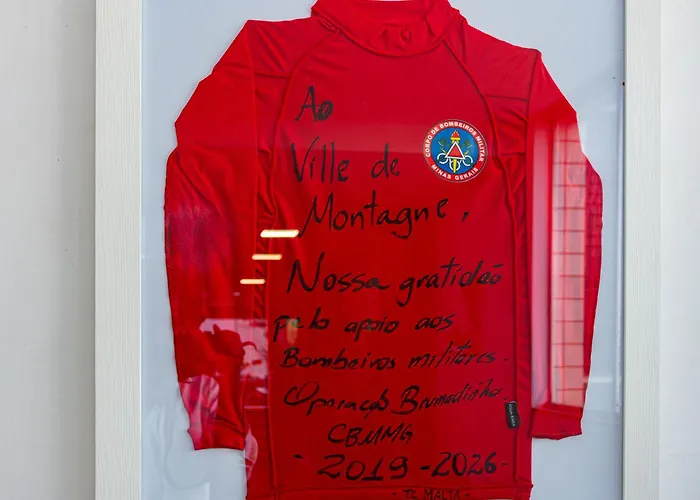 Ao
Ville de
Montagne,
CORPO DE BOMBEIROS MILITAR
MINAS GERAIS
Nossa gratidão
pelo apoio aos
Bombeiros militares.
Operação Brumadinho.
CBMMG
- 2019 - 2026 -
- TC MALTA -